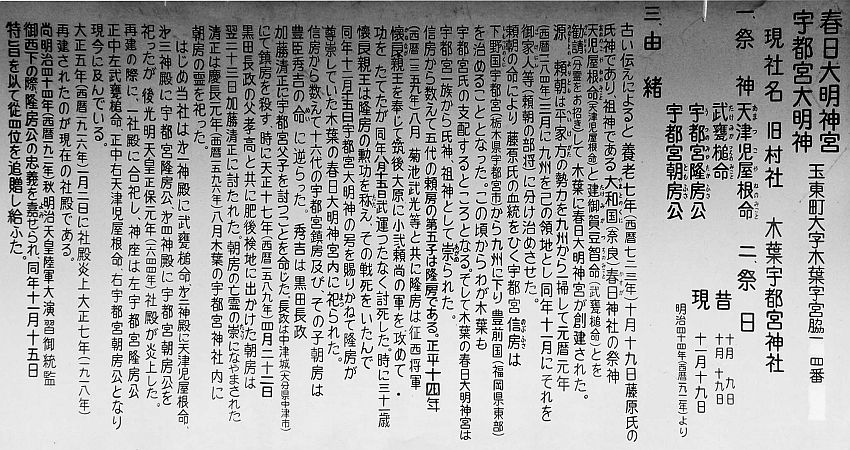 春日大明神宮
宇都宮大明神
玉東町大字木葉字宮脇一一四番
現社名 旧村社 木葉宇都宮神社
一、祭神 天津児屋根命
武甕槌命
宇都宮隆房公
宇都宮朝房公
二、祭日
昔 十月 九日
十月 十九日
現 十一月十九日
明治四十四年(西暦一九一一年)より
三、由緒
古い伝えによると養老七年(西暦七二三年)十月十九日藤原氏の
氏神であり、祖神である大和国(奈良)春日神社の祭神
天児屋根命(天津児屋根命)と建御賀豆智命(武甕槌命)とを
勧請(分霊をお招き)して木葉に春日大明神宮が創建された。
源 頼朝は平家方の勢力を九州から一掃して元暦元年
(西暦一一八四年)三月に九州を己の領地とし同年十一月にそれを
御家人等(頼朝の部将)に分け治めさせた。
頼朝の命により、藤原氏の血統をひく宇都宮信房は
下野国宇都宮(栃木県宇都宮市)から九州に下り豊前国(福岡県東部)
を治めることとなった。この頃からわが木葉も
宇都宮氏の支配するところとなる。そして木葉の春日大明神宮は
宇都宮一族から氏神、祖神として崇られた。
信房から数えて五代の頼房の第五子は隆房である。正平十四年
(西暦一三五九年)八月 菊池武光等と共に隆房は征西将軍
懐良親王を奉じて筑後大原に小弐頼尚の軍を攻めて・
功をたてたが同年八月十五日武運つたなく討死した。時に三十一歳
懐良親王は隆房の勲功を称え、その戦死をいたんで
同年十二月十五日宇都宮大明神の号を賜りかねて隆房が
尊崇していた木葉の春日大明神宮内に祀られた。
信房から数えて十六代の宇都宮鎮房及び、その子朝房は
豊臣秀吉の命に逆らった。秀吉は黒田長政
加藤清正に宇都宮父子を討つことを命じた。長政は中津城(大分県中津市)
にて鎮房を殺す。時に天正十七年(西暦一五八九年)四月二十二日
黒田長政の父孝高と共に肥後検地に出かけた朝房は
翌二十三日加藤清正に討たれた。朝房の亡霊の祟になやまされた
清正は慶長元年(西暦一五九六年)八月木葉の宇都宮神社内に
朝房の霊を祀った。
はじめ当社は第一神殿に武甕槌命、第二神殿に天津児屋根命、
第三神殿に宇都宮隆房公、第四神殿に宇都宮朝房公を
祀ったが後光明天皇正保元年(一六四四年)社殿が炎上した。
再建の際に、一社殿に合祀し、神座は左宇都宮隆房公
正中左武甕槌命、正中右天津児屋根命、右宇都宮朝房公となり
現今に及んでいる。
大正五年(西暦一九一六年)二月二日に社殿炎上大正七年(一九一八年)
再建されたのが現在の社殿である。
尚明治四十四年(西暦一九一一年)秋、明治天皇陸軍大演習御統監
御西下の際、隆房公の忠義を嘉せられ、同年十一月十五日
特旨を以て従四位を追贈し給ふた。